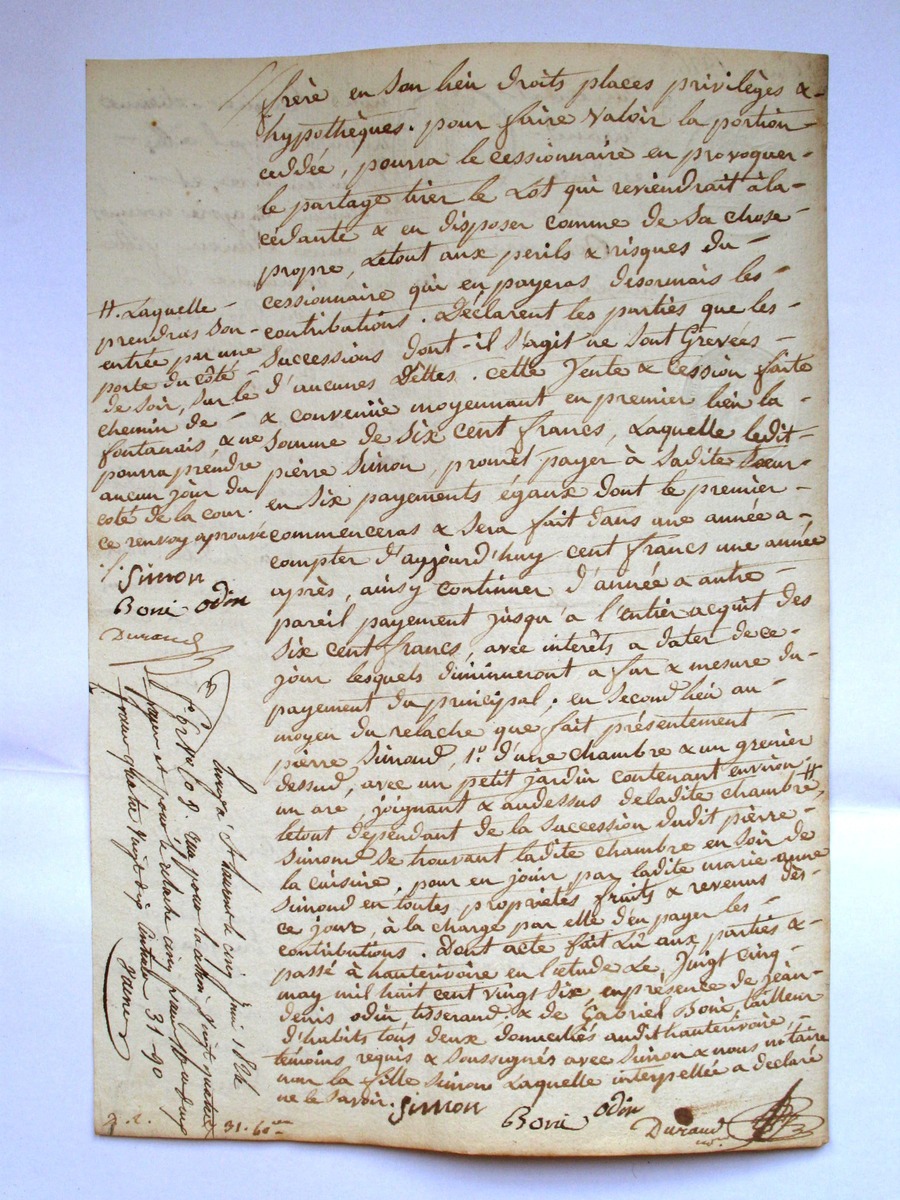 frère en son lieu droits places privilèges &
hypothèques. pour faire valoir la portion
ceddée, pourra le cessionnaire en provoquer
le partage tirer le Lot qui reviendrait à la
cédante & en disposer comme de sa chose
propre, Letout aux perils & risques du
cessionnaire qui en payeras disormais les
contributions. Déclarent les parties que les
successions dont-il s'agit ne sont Grevées
d'aucunes dettes. cette Vente & Cession faite
& convenüe moyennant en premier lieu la
somme de six cent francs, Laquelle ledit
pierre Simon, promet payer à sadite Sœur
en six payements égaux dont le premier
commenceras & sera fait dans une année a
compter d'aujourd'huy cent francs une année
après, ainsy continuer d'année a autre
pareil payement jusqu'a l'entier acquit des
six cent francs, avec interêts a dater de ce
jour lesquels diminueront a fur & mesure du
payement du principal; en second lieu au
moyen du relache que fait présentement
pierre Simond, 1.° d'une chambre & un grenier
dessud, avec un petit jardin contenant environ
un are, joignant & audessus deladite chambre, #
letout dépendant de la succession dudit pierre
Simond se trouvant ladite chambre en soir de
la cuisine. pour en jouir par ladite marie anne
Simond en toutes propriétés fruits & revenus dès
ce jour, à la charge par elle d'en payer les
contributions. Dont acte fait Lû aux parties &
passé à hauterivoire en l'etude Le, Vingt cinq
may mil huit cent vingt six en presence de jean
denis odin tisserand, & de Gabriel Boni, tailleur
d'habits tous deux domeciliés audit hauterivoire,
témoins requis & soussignés avec Simon & nous notaire
non la fille Simon Laquelle interpellée a declaré
ne le savoir. Simon
Boni odin
Durand
#. Laquelle
prendras son
entrée par une
porte du côté
de soir, sur le
chemin de
fontanais, & ne
pourra prendre
aucun jour du
coté de la cour.
ce renvoy aprouvé
Simon
Boni odin
Durand
St Laurent le cinq juin 1826
pour la vingt quatre
et pour le relache cinq francs
francs quatre vingt dix centimes 31-90
31. 60